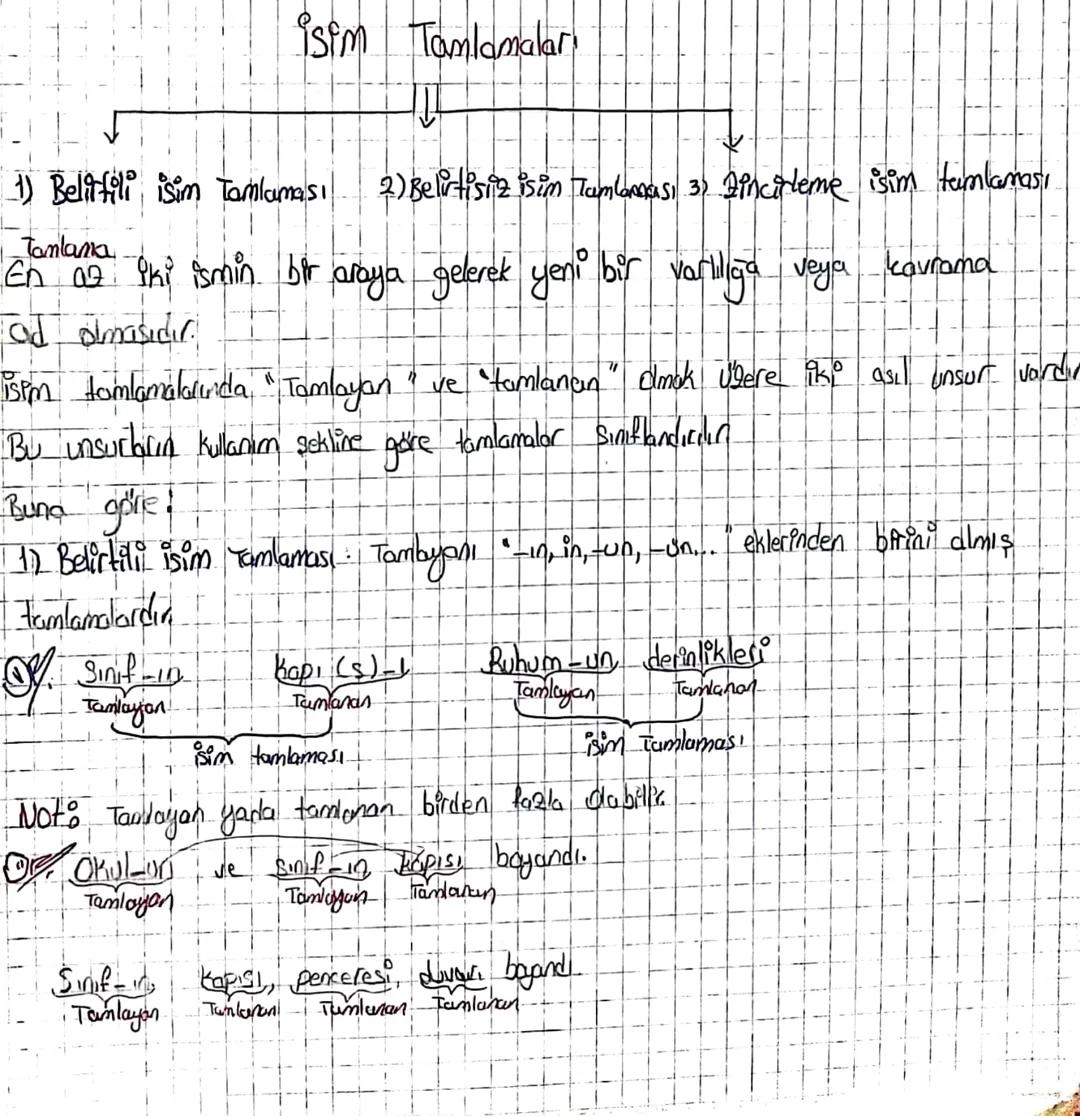 İsim Tamlamaları
1) Belirtili isim Tamlaması 2) Belirtisiz isim Tamlaması 3) Zincirleme isim tamlaması
Tamlama
En az iki ismin bir araya gelerek yeni bir varlılığa veya kavrama
ad olmasıdır.
isim tamlamalarında "Tamlayan" ve "tamlanan" olmak üzere iki asıl unsur vardır
Bu unsurların kullanım şekline göre tamlamalar sınıflandırılır
Buna göre;
1) Belirtili isim Tamlaması: Tamlayanı "-ın, in, -un, -ün..." eklerinden birini almış
tamlamalardır.
Sınıf-ın kapı(s)-ı Ruhum-un derinlikleri
Tamlayan Tamlanan Tamlayan Tamlanan
isim tamlaması isim Tamlaması
Not: Tamlayan yada tamlanan birden fazla olabilir.
Okul-un ve sınıf-ın kapısı boyandı.
Tamlayan Tamlayan Tamlanan
Sınıf-ın kapısı, penceresi, duvarı boyandı.
Tamlayan Tamlanan Tamlanan Tamlanan